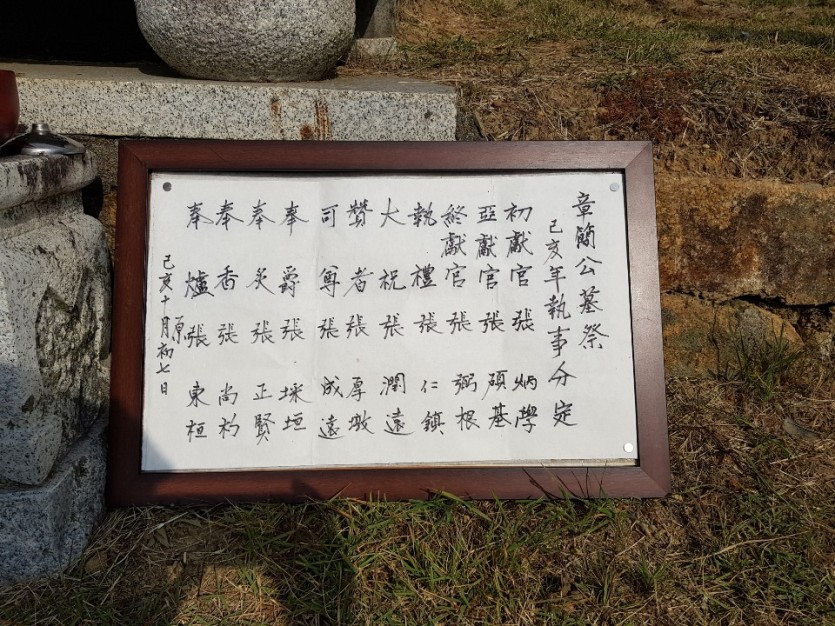 章簡公墓祭
己亥年執事分定
初獻官 張 炳學
亞獻官 張 碩基
終獻官 張 弼根
執禮 張 仁鎮
大祝 張 潤遠
贊者 張 厚墩
司尊 張 成遠
奉爵 張 埰垣
奉炙 張 正賢
奉香 張 尚
奉爐 張 東桓
原
己亥十月初七日